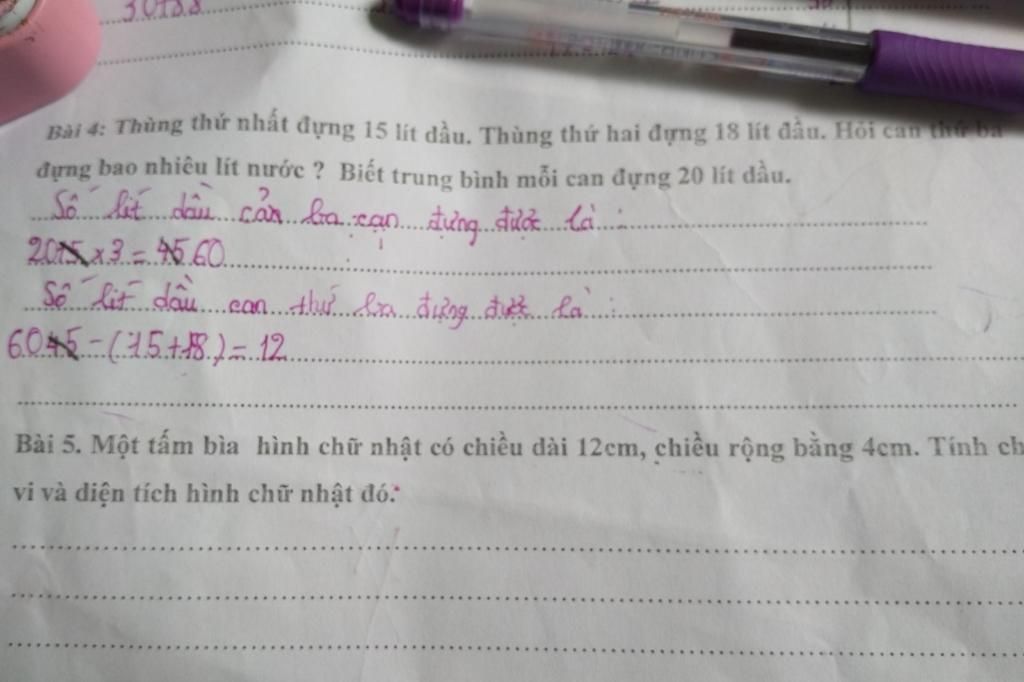 30788
Bài 4: Thùng thứ nhất đựng 15 lít dầu. Thùng thứ hai đựng 18 lít đầu. Hỏi can thứ ba
đựng bao nhiêu lít nước ? Biết trung bình mỗi can đựng 20 lít dầu.
Số lít dầu cả ba can đựng được là :
20 x 3 = 60
Số lít dầu can thứ ba đựng được là :
60 - (15+18) = 12
Bài 5. Một tấm bìa hình chữ nhật có chiều dài 12cm, chiều rộng bằng 4cm. Tính ch
vi và diện tích hình chữ nhật đó.